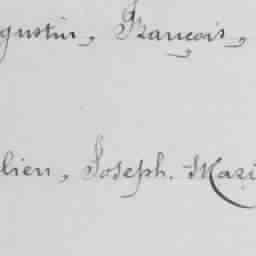 gustin, François,
lien, Joseph. Mari